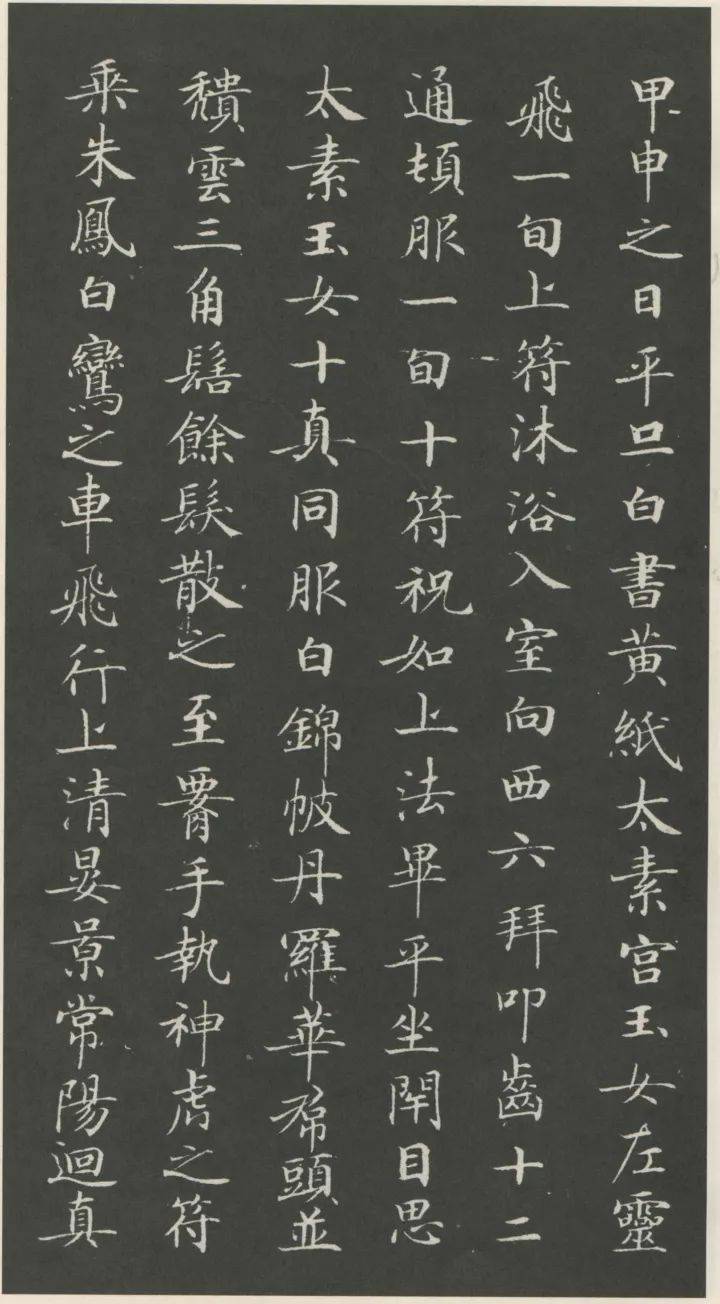 甲申之日平旦白書黄紙太素宫玉女左靈
飛一旬上符沐浴入室向西六拜叩齒十二
通頓服一旬十符祝如上法畢平坐閇目思
太素玉女十真同服白錦帔丹羅華帬頭並
頽雲三角髻餘髮散之至罥手執神虎之符
乘朱鳳白鸞之車飛行上清晏景常陽迴真